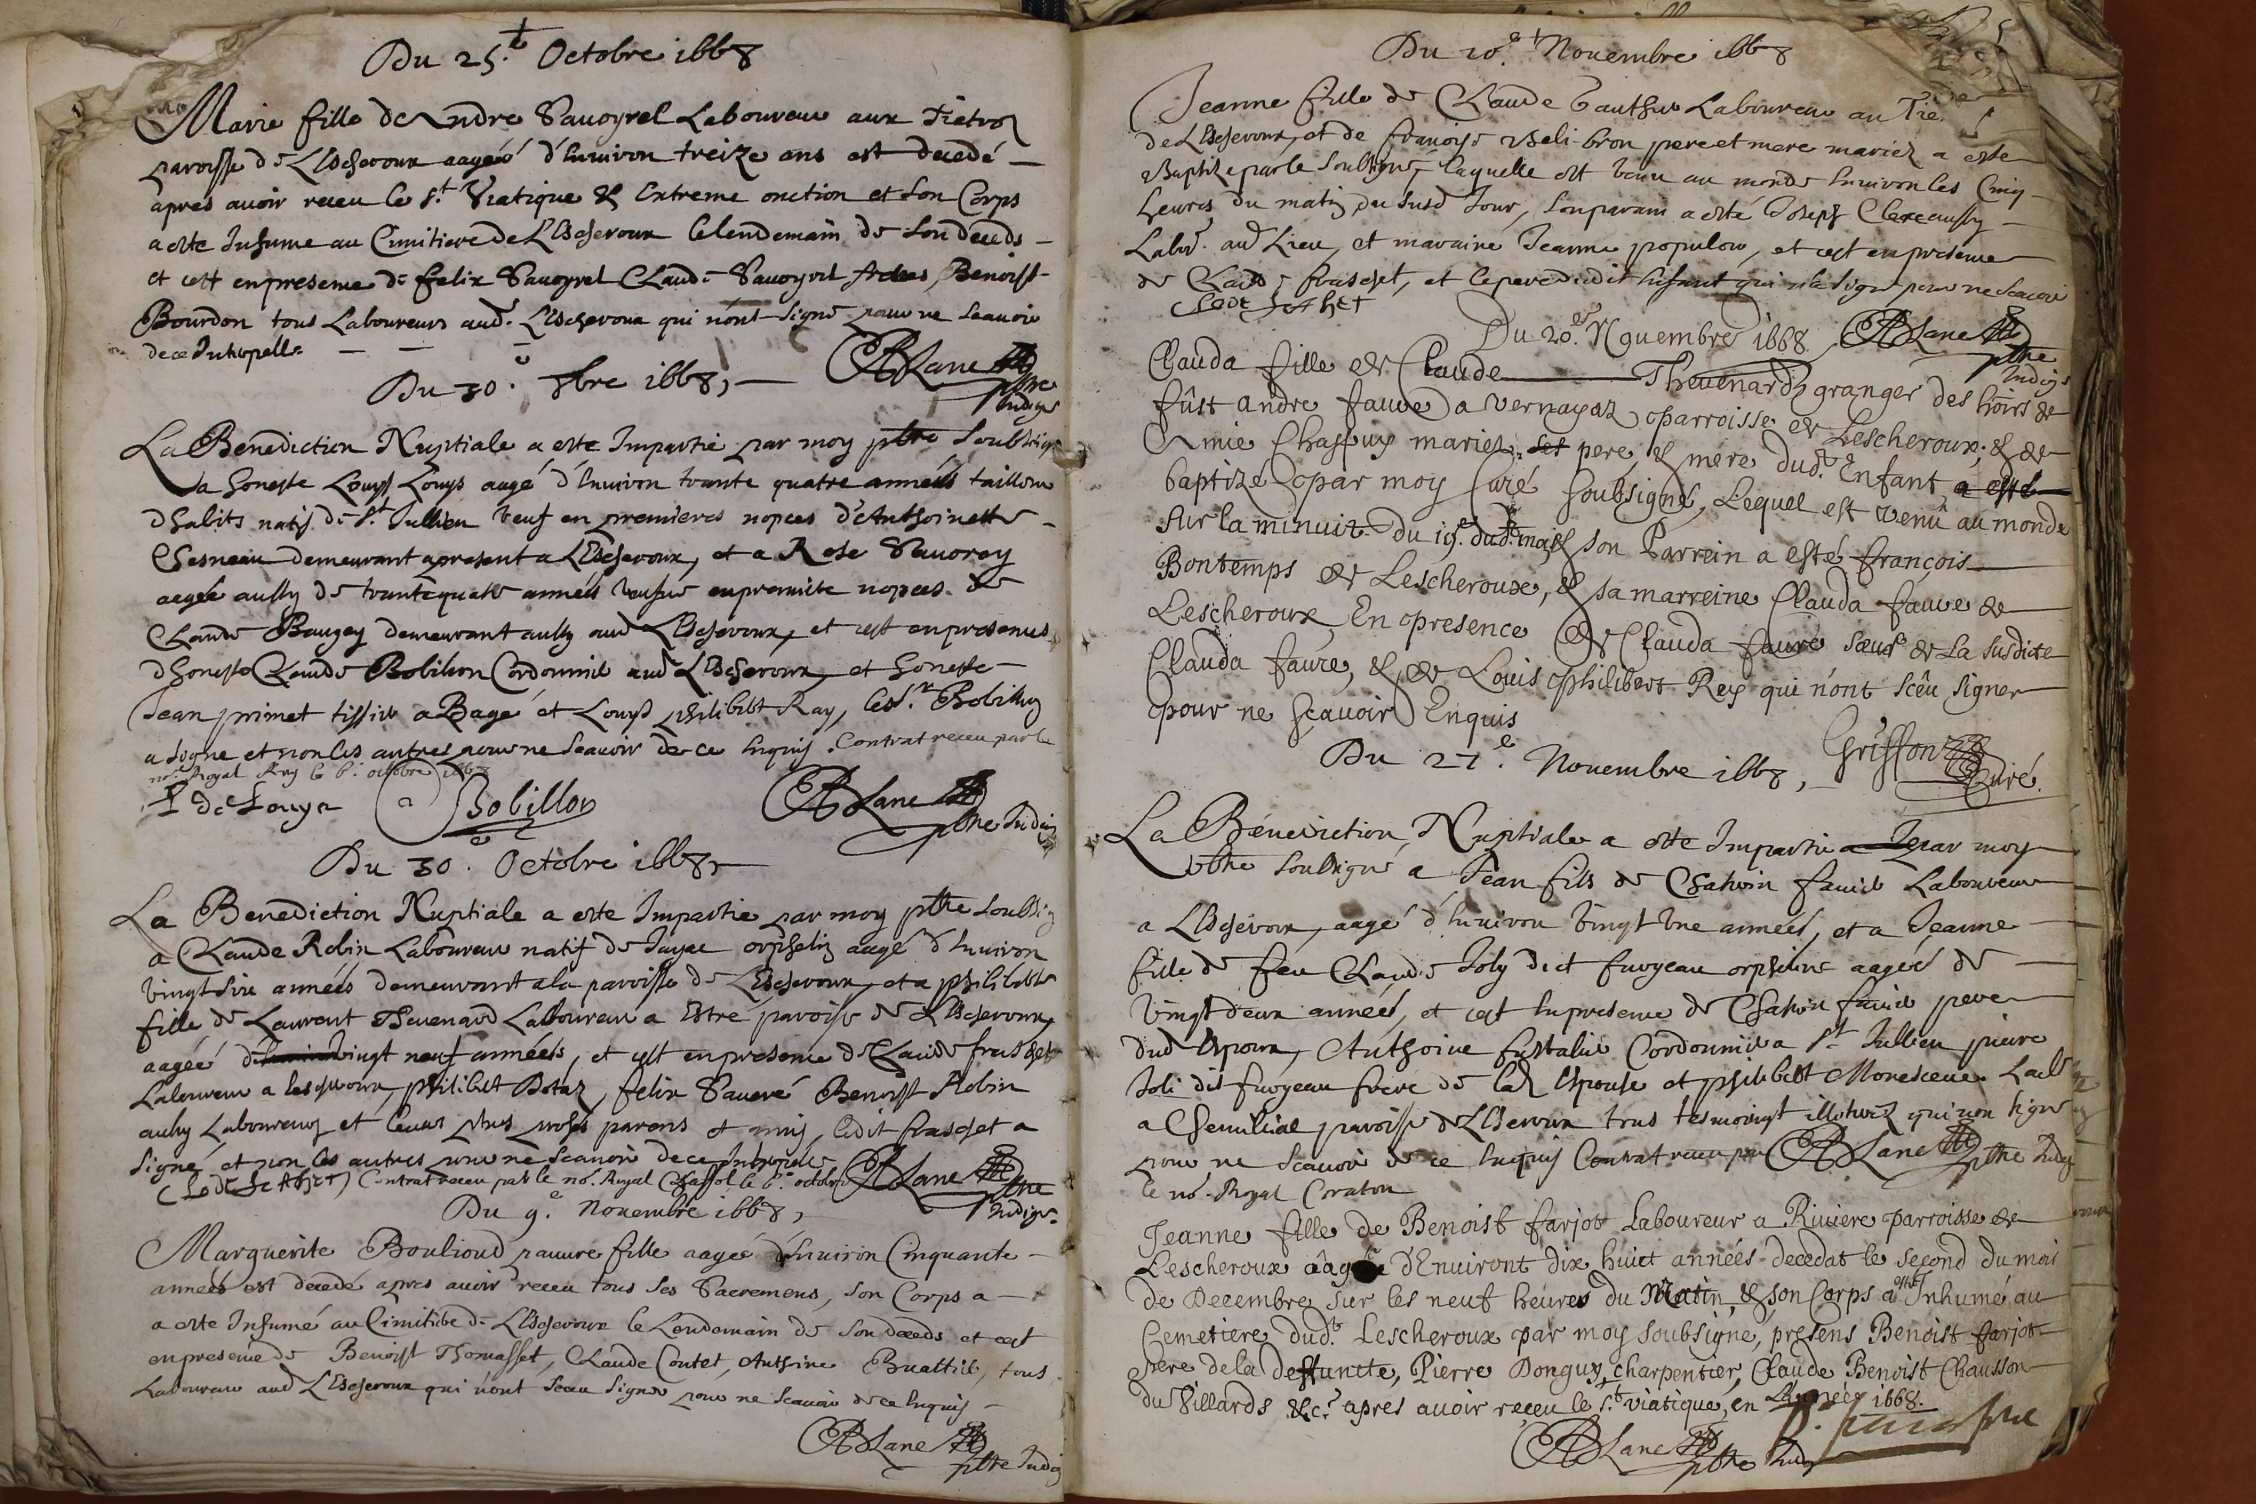 Du 25.e Octobre 1668
Marie fille de Andre Vauoyrel Laboureur aux
parroisse de Lescheroux aagée d'Enuiron treize ans est decedé
apres auoir receu le St. Viatique & Extreme onction et son Corps
a este Inhume au Cimitiere de Lescheroux le lendemain de son deceds
et cest en presense de felix Vauoyrel Claude Vauoyrel Benoist
Bourdon tous Laboureurs aud. Lescheroux qui n'ont signe pour ne scauoir
de ce Interpelle
Du 30.e 8bre 1668,
A Lane pbre Indigne
La Benediction Nuptiale a este Impartie par moy pbre soubsigne
a honeste Louys Louys aagé d'Enuiron trante quatre années tailleur
d'habits natif de St. Jullien veuf en premieres nopces d'Anthoinette
Chesneau demeurant a present a Lescheroux, et a Rose Vauorey
aagée aussy de trante quatre années veufue en premiere nopces de
Claude Baugey demeurant aussy aud Lescheroux, et cest en presences
d'honeste Claude Bobillon Cordonnier aud Lescheroux, et honeste
Jean primet tissier a Bagé et Louys philibert Ray, led sr. Bobillon
a signe et non les autres pour ne scauoir de ce Enquis. Contrat receu par le
no.re Royal Rey le 6.e octobre 1668
Bobillon
A Lane pbre Indigne
Du 30.e Octobre 1668,
La Benediction Nuptiale a este Impartie par moy pbre soubsig
a Claude Robin Laboureur natif de Jayac orphelin aagé d'Enuiron
vingt six années demeurant a la parroisse de Lescheroux, et a philiberte
fille de Laurent Theuenard Laboureur a Estré parroisse de Lescheroux,
aagée de vingt neuf années, et cest en presense de Claude fraschet
Laboureur a Lescheroux, philibert Botaz, felix Vaueré Benoist Robin
aussy Laboureurs et leurs plus proches parens et amis, ledit fraschet a
signé et non les autres pour ne scauoir de ce Interpelle
Contrat receu par le no.re Royal Chassol le 6.e octobre
A Lane pbre Indigne
Du 9.e Nouembre 1668,
Marguerite Boulioud pauure fille aagée d'Enuiron Cinquante
années est decedé apres auoir receu tous ses Sacremens, son Corps a
a este Inhumé au Cimitiere de Lescheroux le Lendemain de son deceds et cest
en presense de Benoist Thomasset, Claude Contet, Anthoine Buattier, tous
Laboureurs aud Lescheroux qui n'ont sceu signer pour ne scauoir de ce Enquis
A Lane pbre Indig
Du 10.e Nouembre 1668
Jeanne fille de Claude Gauthier Laboureur au
de Lescheroux, et de françoyse beli-bron pere et mere mariez a este
Baptize par le soubsigné, laquelle est venu au monde Enuiron les Cinq
heures du matin du susd Jour, son parain a esté Joseph Clere aussy
Labor. aud Lieu, et maraine Jeanne populow, et cest en presense
de Claude fraschet, et le pere dudit Enfant qui n'a signe pour ne scauoir
Du 20.e Nouembre 1668.
A Lane pbre Indigne
Clauda fille de Claude Theuenard granger des hoirs de
fûst andre faure a Vernayaz parroisse de Lescheroux; & de
Amie Chaspuy mariez, ses pere, & mere dud.t Enfant, a esté
baptize par moy Curé soubsigné, Lequel est venû au monde
sur la minuit du 19.e dud.t mois, son Parrein a esté françois
Bontemps de Lescheroux, & sa marreine Clauda faure de
Lescheroux, En presence de Clauda faure sœur de La susdicte
Clauda faure, & de Louis Philibert Rey qui n'ont scêu signer
pour ne sçauoir Enquis
Griffon Curé.
Du 21.e Nouembre 1668,
La Benediction Nuptiale a este Impartie a J par moy
pbre soubsigne a Jean fils de Chatrin fauier Laboureur
a Lescheroux, aagé d'Enuiron vingt vne années, et a Jeanne
fille de feu Claude Joly dict furgeau orpheline aagée de
vingt deux années, et cest En presense de Chatrin fauier pere
dud Espoux, Anthoine Cordonnier a St. Jullien pierre
Joli dit furgeau frere de lad Espouse et philibert Morestene Lab
a Cheuilial parroisse de Lescheroux tous tesmoingt illitterez qui n'on signe
pour ne scauoir de ce Enquis Contrat receu par
le no.re Royal Coraton
A Lane pbre Indig
Jeanne fille de Benoist farjot Laboureur a Riuiere parroisse de
Lescheroux âagée d'Enuiront dix huict années decedat le second du moi
de Decembre sur les neuf heures du Matin, & son Corps a esté Inhumé au
Cemetiere dud.t Lescheroux par moy soubsigné, presens Benoist farjot
pere de la deffuncte, Pierre Donguy, charpentier, Claude Benoist Chausson
du Villards &c.r apres auoir receu le s.t viatique, en L'année 1668.
A Lane pbre Indig